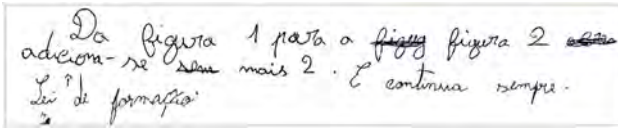 Da figura 1 para a figura 2
adiciom-se mais 2. E continua sempre.
Lei de formação: